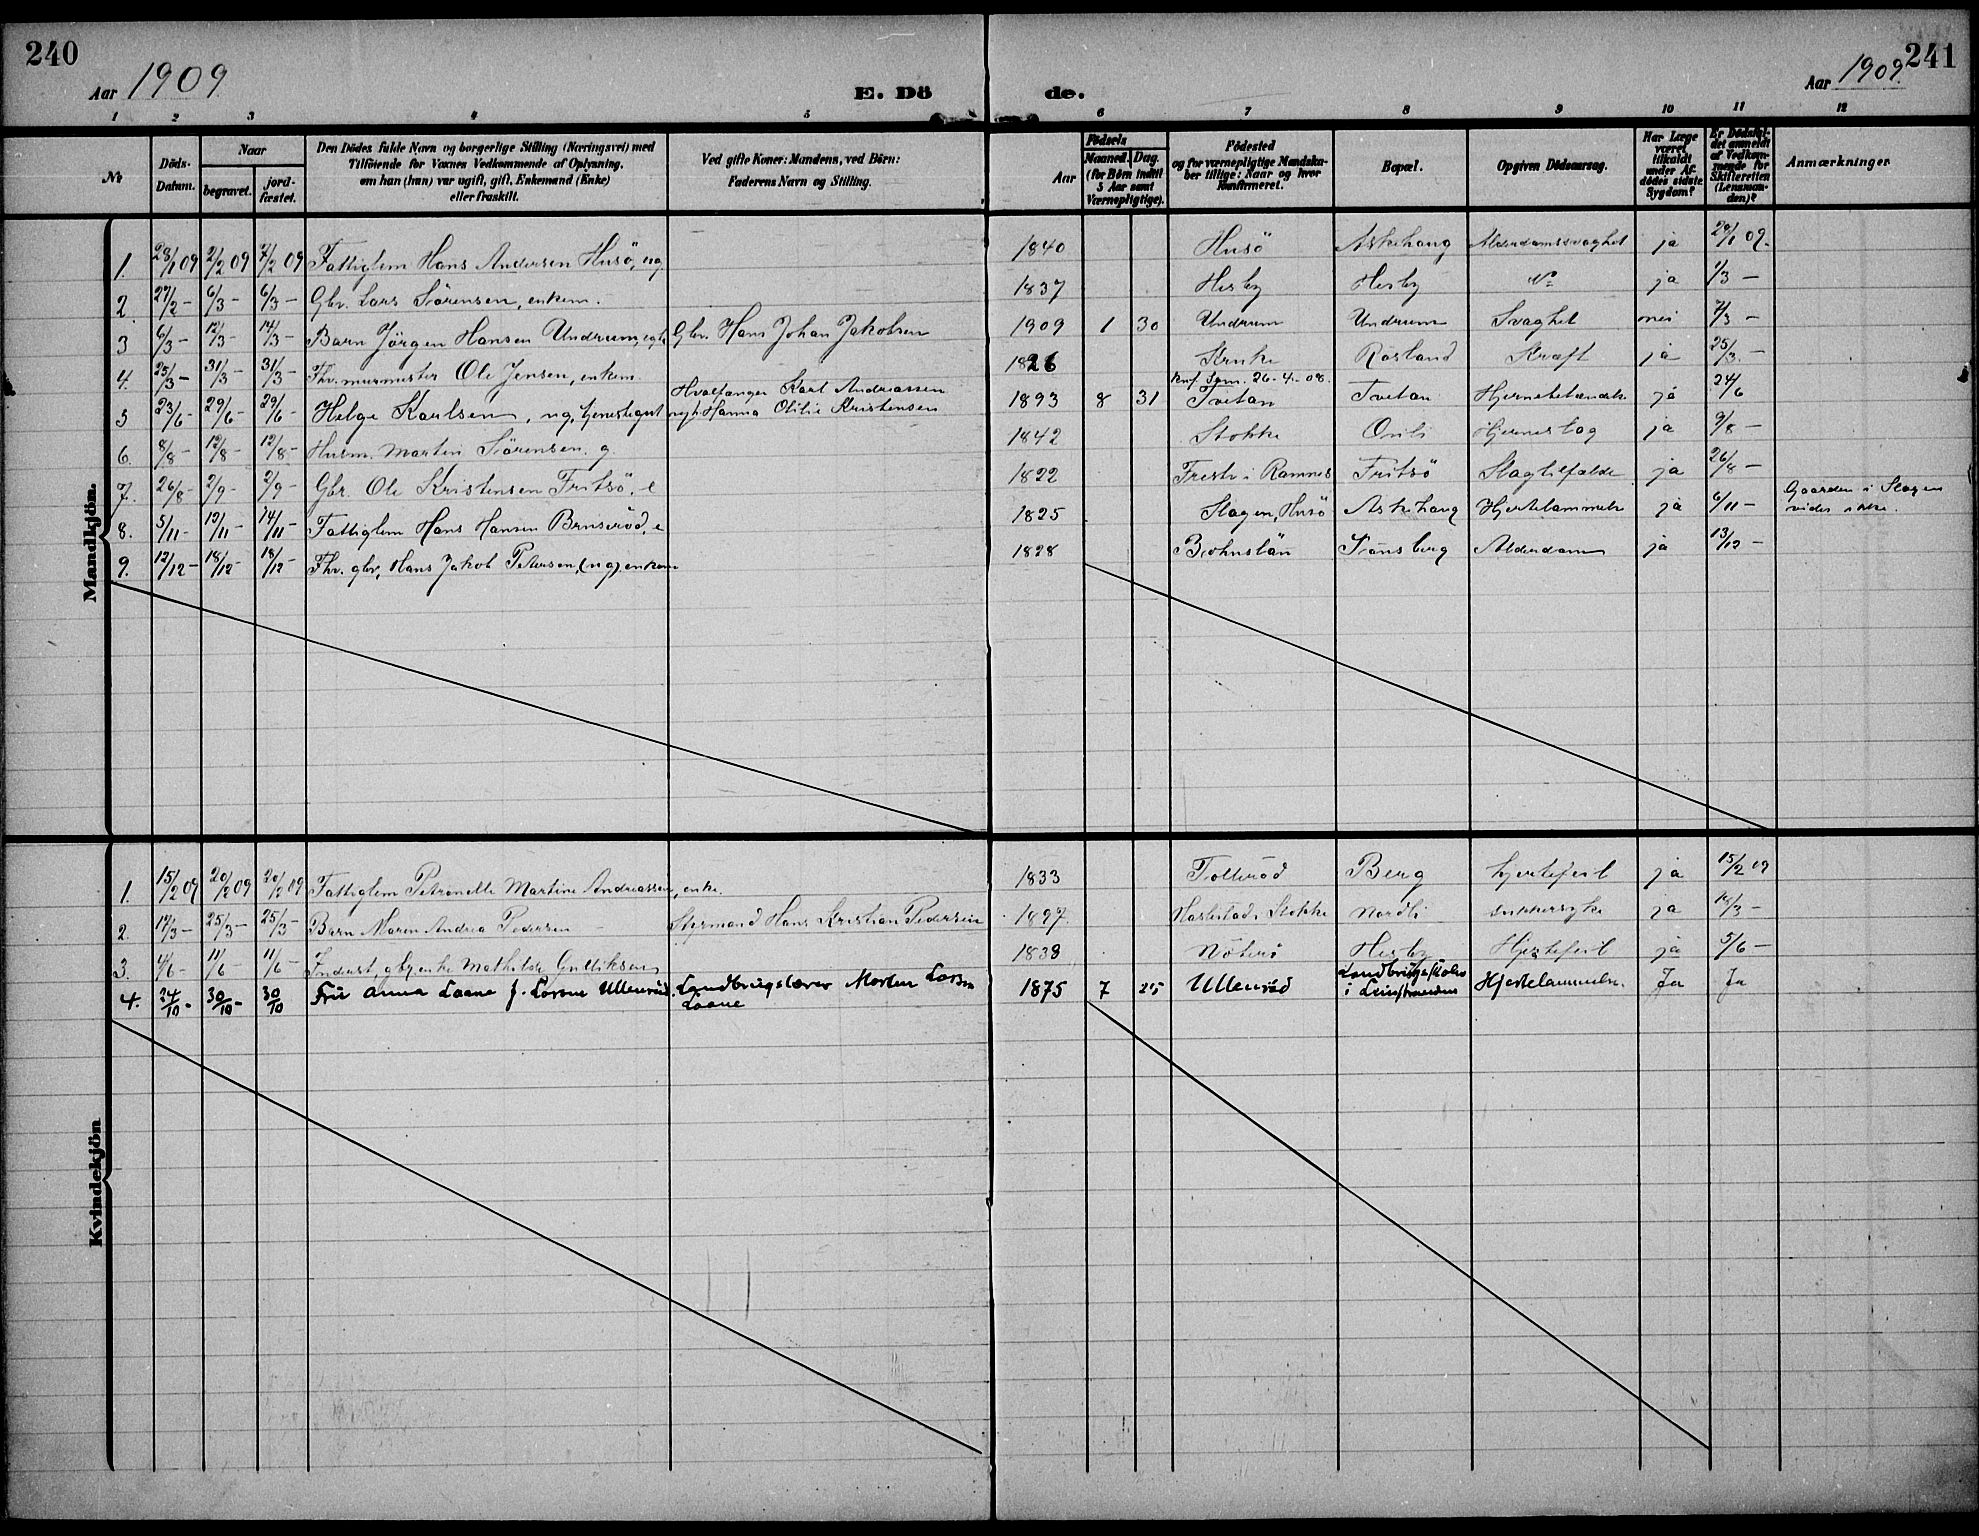 240
Aar 1909
E. Dö
de.
Aar 1909.
241
1 2 3 4 5 6 7 8 9 10 11 12
№
Döds-
Datum.
Naar
begravet.
jord-
fæstet.
Den Dödes fulde Navn og borgerlige Stilling (Næringsvei) med
Tilföiende for Voxnes Vedkommende af Oplysning,
om han (hun) var ugift, gift, Enkemand (Enke)
eller fraskilt.
Ved gifte Koner: Mandens, ved Börn:
Faderens Navn og Stilling.
Födsels
Aar
Maaned. Dag.
(for Börn indtil
5 Aar samt
Værnepligtige).
Födested
og for værnepligtige Mandska-
ber tillige: Naar og hvor
konfirmeret.
Bopæl.
Opgiven Dödsaarsag.
Har Læge
været
tilkaldt
under Af-
dödes sidste
Sygdom?
Er Dödsfal-
det anmeldt
af Vedkom-
mende for
Skifteretten
(Lensman-
den)?
Anmærkninger
Mandkjön.
1. 28/1 09 2/2 09 7/2 09 Fattiglem Hans Andersen Husö, ug. 1840 Husö Askehaug Alderdomssvaghet ja 29/1 09.
2. 27/2 – 6/3 – 6/3 – Gbr. Lars Sörensen, enkem. 1837 Hesby Hesby ja 1/3 –
3 6/3 – 12/3 – 14/3 – Barn Jörgen Hansen Undrum, Gbr. Hans Johan Jakobsen 1909 1 30 Undrum Undrum Svaghet nei 7/3 –
4. 25/3 – 31/3 – 31/3 – Fhv. murmester Ole Jensen, enkem. 1826 Kruke Råsland Kræft ja 25/3. –
Hvalfanger Karl Andreassen
Knf. Sem. 26-4-08.
5 23/6 – 29/6 – 29/6 – Helge Karlsen, ug, Hanna Otilie Kristensen 1893 8 31 Tvetan Tvetan ja 24/6
6. 8/8 – 12/8 – 12/8 – Husm. Martin Sörensen. g 1842 Stokke ja 9/8 –
7. 26/8 – 2/9 – 2/9 – Gbr. Ole Kristensen Fritsö, e 1822 i Ramnes Fritsö Slagtilfælde ja 26/8 –
8. 5/11 – 13/11 – 14/11 – Fattiglem Hans Hansen Brunseröd, e 1825 Slagen, Husö Askehaug Hjertelammelse ja 6/11 – Gaarden i Slagen
vides ikke.
9. 12/12 – 18/12 – 18/12 – Fhv. gbr, Hans Jakob Petersen, (ug) enkem 1828 Tönsberg Alderdom ja 13/12 –
Kvindekjön
1. 15/2 09 20/2 09 20/2 09 Fattiglem Petronelle Martine Andreassen, enke. 1833 Tolleröd Berg hjertefeil ja 15/2 09
2. 17/3 – 25/3 – 25/3 – Barn Maren Andrea Pedersen – Styrmand Hans Kristian Pedersen 1897. Stokke Nordli sukkersyke ja 18/3 –
3. 4/6 – 11/6 – 11/6 – Inderst, gbrenke Mathilde Gulliksen 1838 Nöterö Hesby Hjertefeil ja 5/6 –
4. 24/10 – 30/10 – 30/10 Fru Anna Laane f. Lorens Ulleröd. Landbrugslærer Morten Larsen 1875 7 25 Ulleröd Landbrugsskolen Hjertelammelse. Ja Ja
Laane